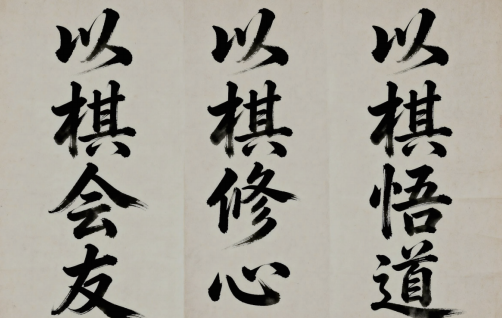 以棋悟道
以棋修心
以棋会友